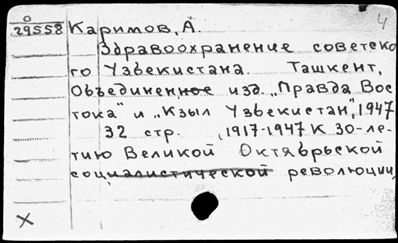 о
29558 Каримов, А. 4
Здравоохранение советско
го Узбекистана. Ташкент,
Объединенное изд. „Правда Вос
тока" и „Кзыл Узбекистан", 1947
32 стр. (1917-1947 К 30-ле-
тию Великой Октябрьской
социалистической революции,
X